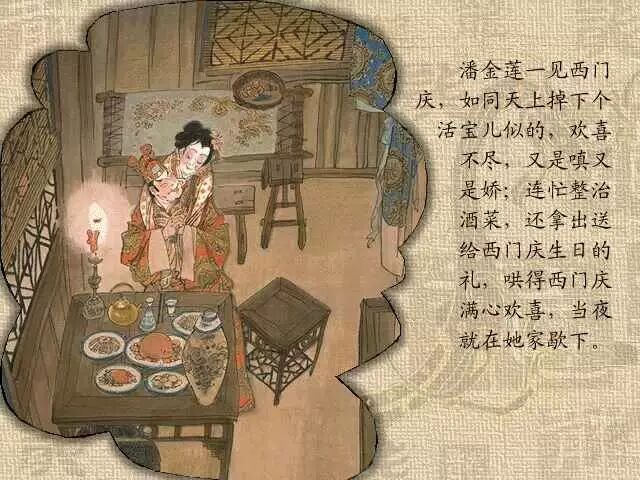 潘金莲一见西门
庆，如同天上掉下个
活宝儿似的，欢喜
不尽，又是嗔又
是娇；连忙整治
酒菜，还拿出送
给西门庆生日的
礼，哄得西门庆
满心欢喜，当夜
就在她家歇下。